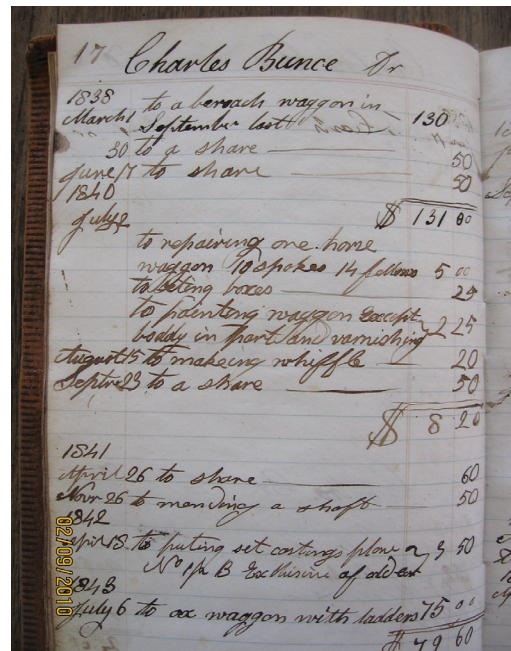 17 Charles Bunce Dr
1838
March 1 to a waggon in 130
September last
30 to a share 50
June 17 to share 50
1840
$ 131 00
July 2
to repairing one horse
waggon 10 spokes 14 fellows 5 00
to seting boxes 25
to painting waggon Except 2 25
boddy in part and varnishing
August 15 to makeing whiffle 20
Septre 23 to a share 50
$ 8 20
1841
April 26 to share 60
Novr 26 to mending a shaft 50
1842
April 18 to puting set castings plow 3 50
No B Exclusive of
1843
July 6 to ox waggon with ladders 75 00
$ 79 60
02/09/2010